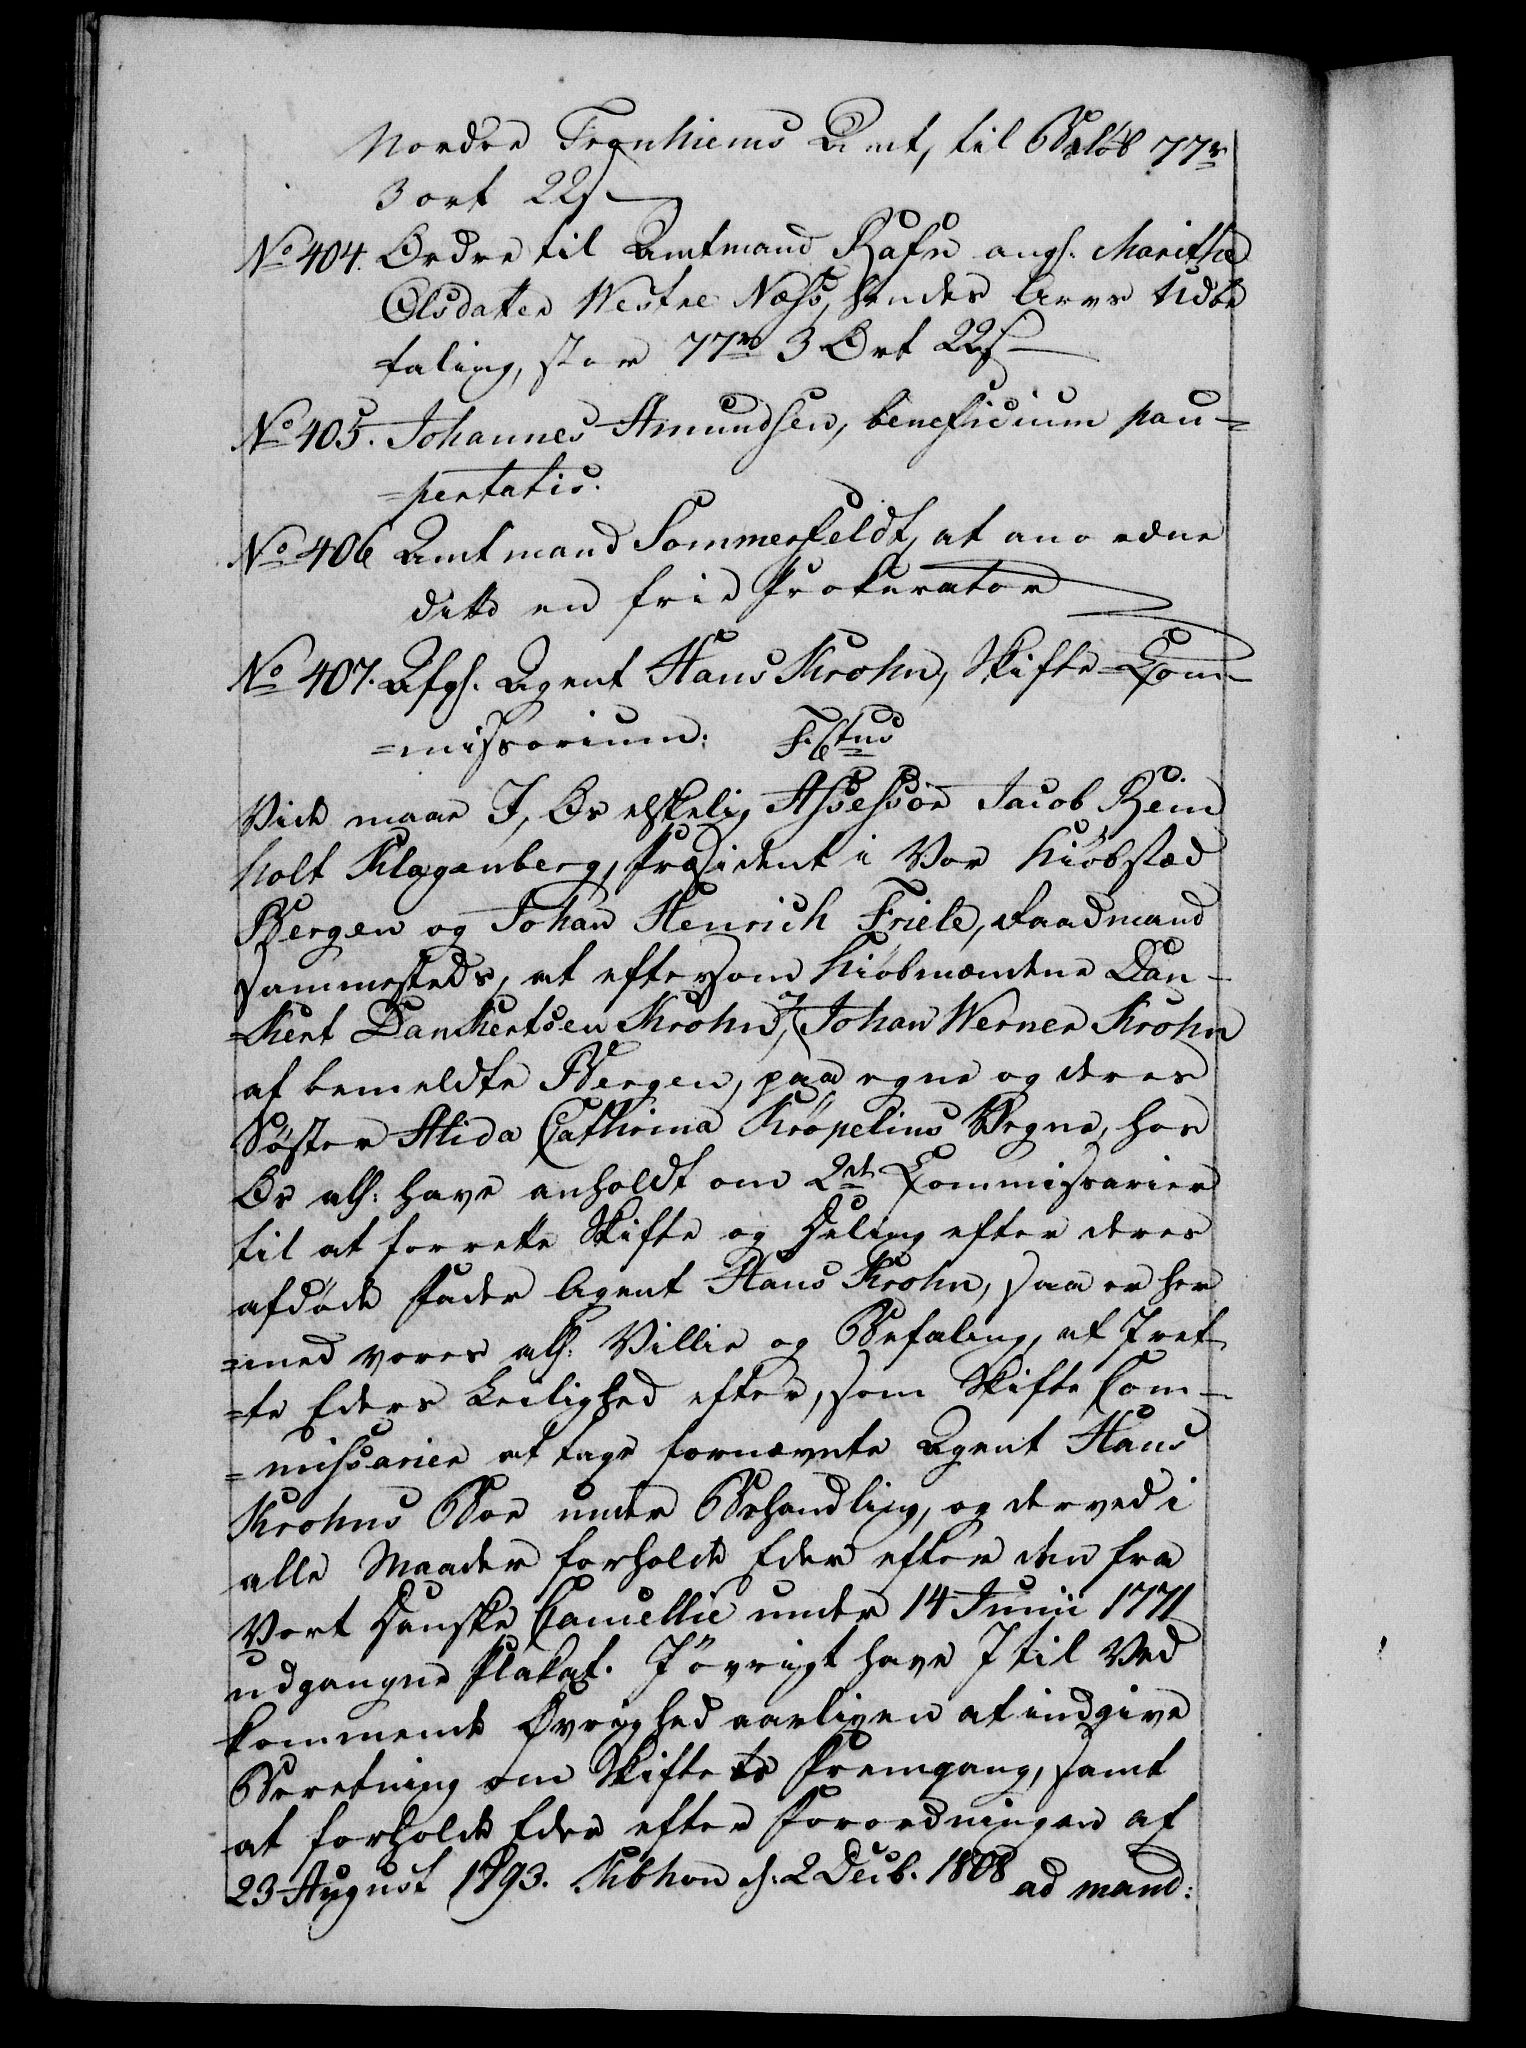 Nordre Tronhiems Amt, til Beløb 77rd
3 ort 22s
No 404. Ordre til Amtmand Rafn angl. Marithe
Olsdatter Westre Næss, hendes Arvs Udbe
=taling, stor 77rd 3 Ort 22s
No 405. Johannes Amundsen, beneficium pau=
=pertatis.
No 406 Amtmand Sommerfeldt, at anordne
ditto en frie Prokurator
No 407. Afgl. Agent Hans Krohn, Skifte-Com-
=missorium:
Vide maae I, Os elskelig Assessor Jacob Rein
holt Klagenberg, Præsident i Vor Kiöbstæd
Bergen og Johan Henrich Friele, Raadmand
sammesteds, at eftersom Kiöbmændene Dan-
=kert Dankertsen Krohn, og Johan Werner Krohn
af bemeldte Bergen, paa egne og deres
Söster Alida Cathrina Kröpelins Vegne, hos
Os all: have anholdt om 2de Commissarier
til at forrette Skifte og Deeling efter deres
afdöde Fader Agent Hans Krohn, saa er her
=med vores all: Villie og Befaling, at I ret-
=te Eders Leilighed efter, som Skifte Com-
=missarier at tage fornævnte Agent Hans
Krohns Boe under Behandling, og derved i
alle Maader forholde Eder efter den fra
Vort Danske Cancellie under 14 Junii 1771
udgangne Plakat. I övrigt have I til Ved
kommende Øvrighed aarligen at indgive
Beretning om Skiftets Fremgang, samt
at forholde Eder efter Forordningen af
23 August 1793. Kbhvn d: 2 Decb. 1808 ad mand: